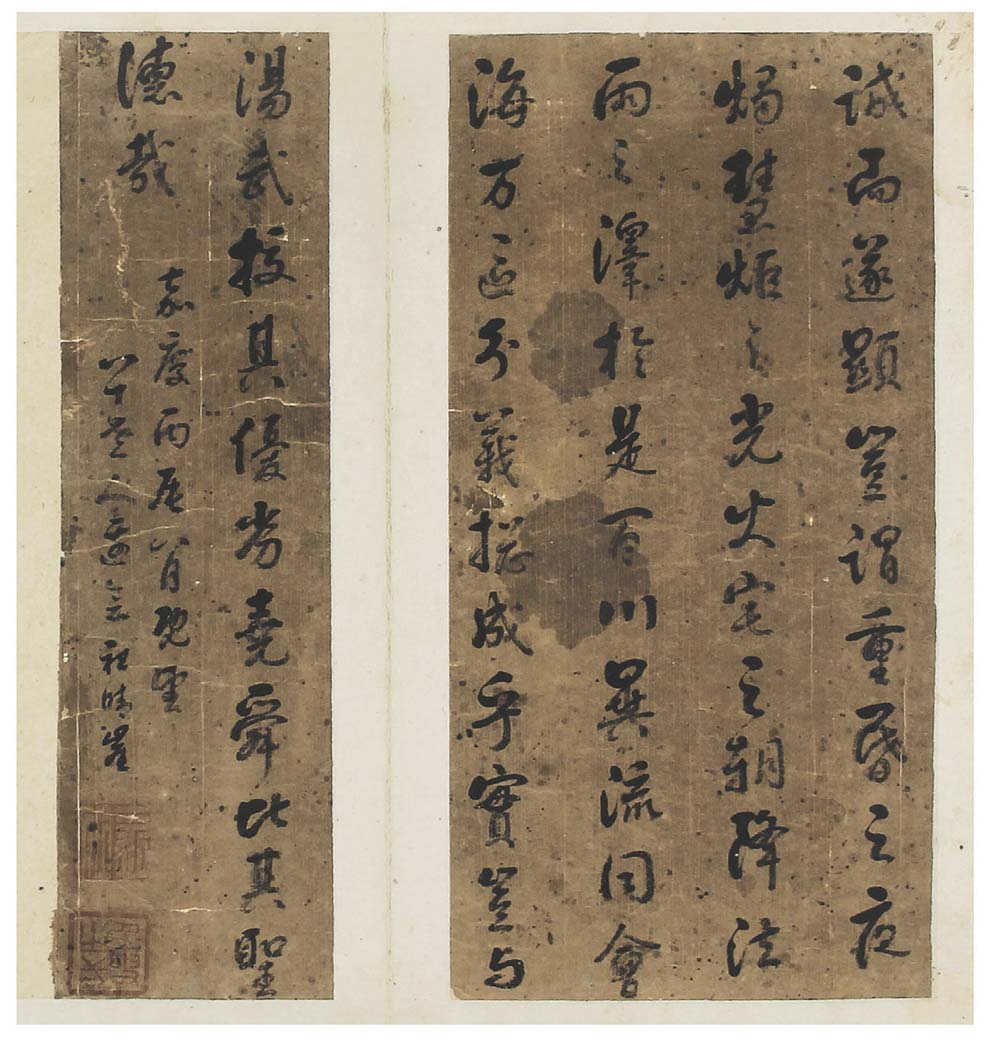 誠而遂顯豈謂重昏之夜
燭慧炬之光火宅之朝降法
雨之澤於是百川異流同會
海万區分義揔成乎實豈与
湯武挍其優劣堯舜比其聖
德哉
嘉慶丙辰八月既望
八十老人